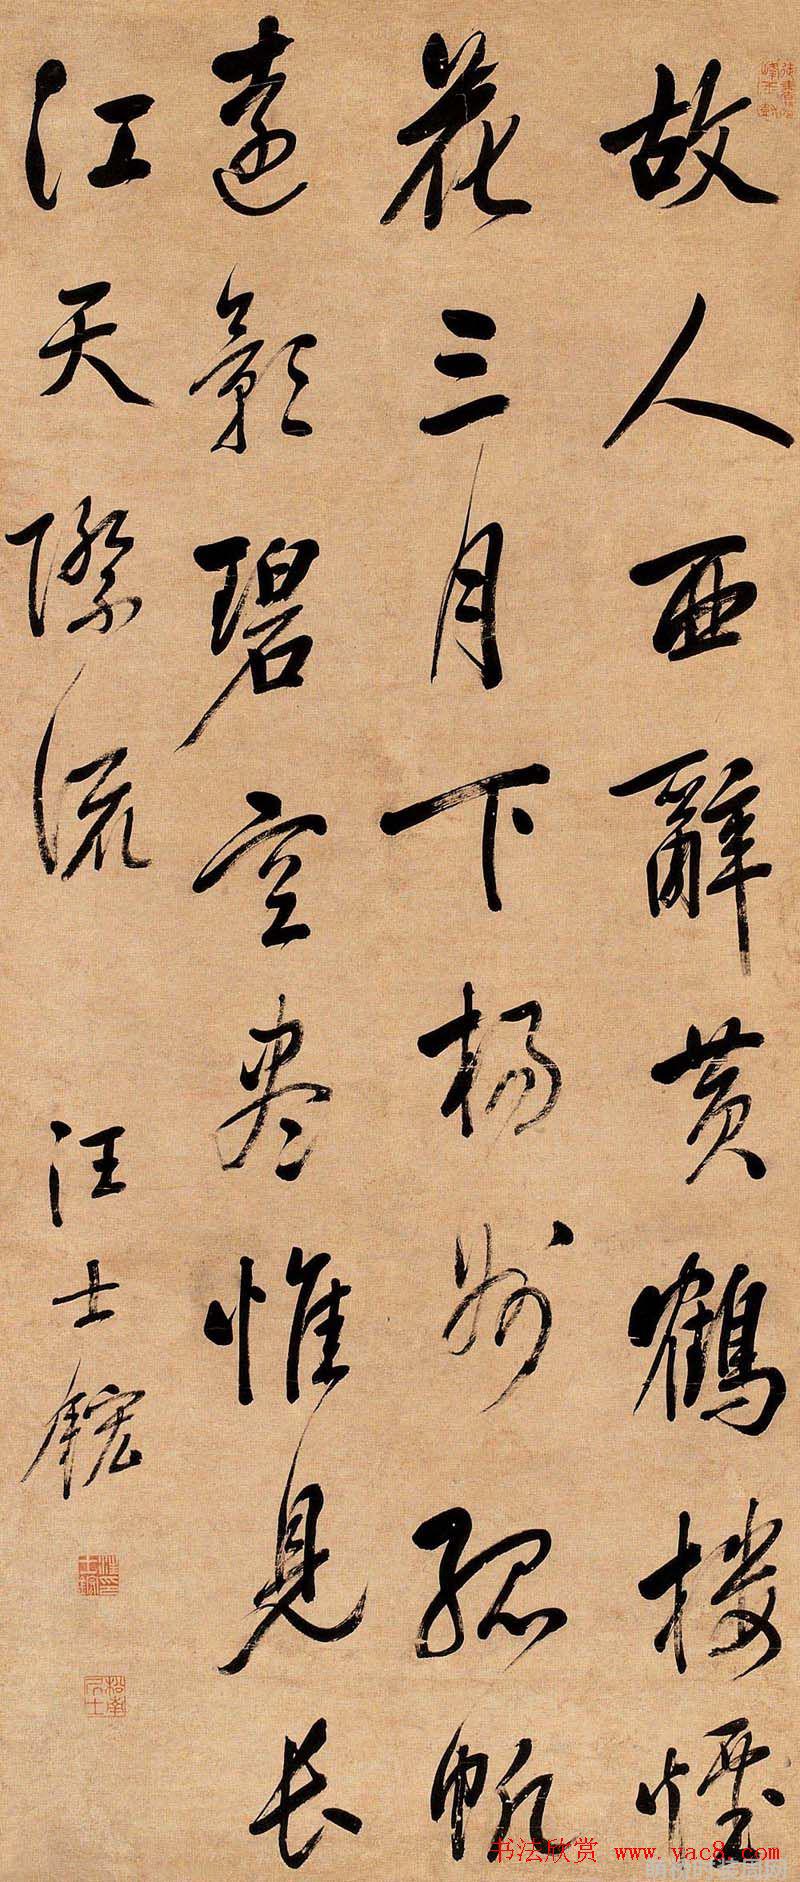 故人西辭黃鶴樓煙
花三月下楊州孤帆
遠影碧空盡惟見長
江天際流
汪士鋐
松南居士
书法欣赏 www.yac8.com